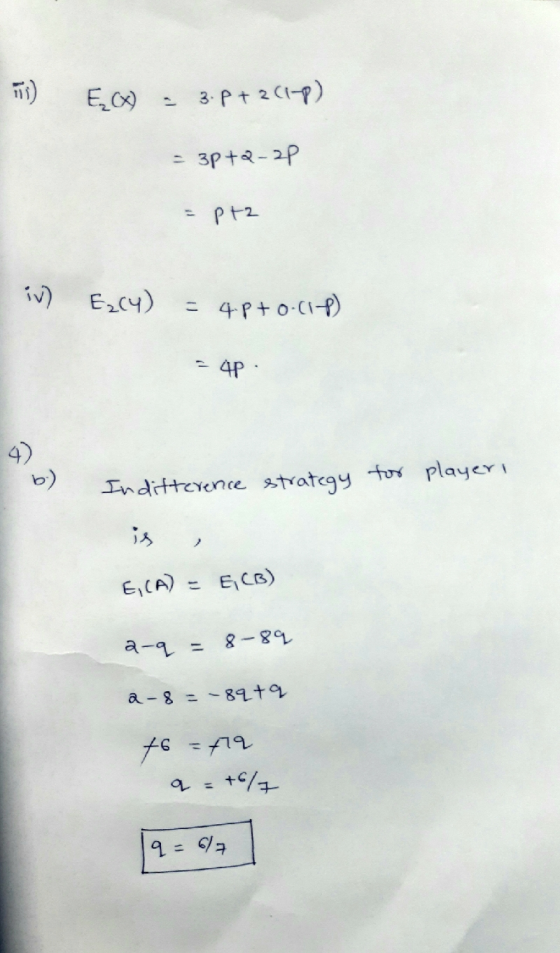 iii) E₂(X) = 3·P + 2(1-P)
= 3P+2-2P
= P+2
iv) E₂(Y) = 4·P + 0·(1-P)
= 4P.
4)
b) Indifference strategy for player 1
is ,
E₁(A) = E₁(B)
2-q = 8-8q
2-8 = -8q+q
-6 = -7q
q = +6/7
q = 6/7